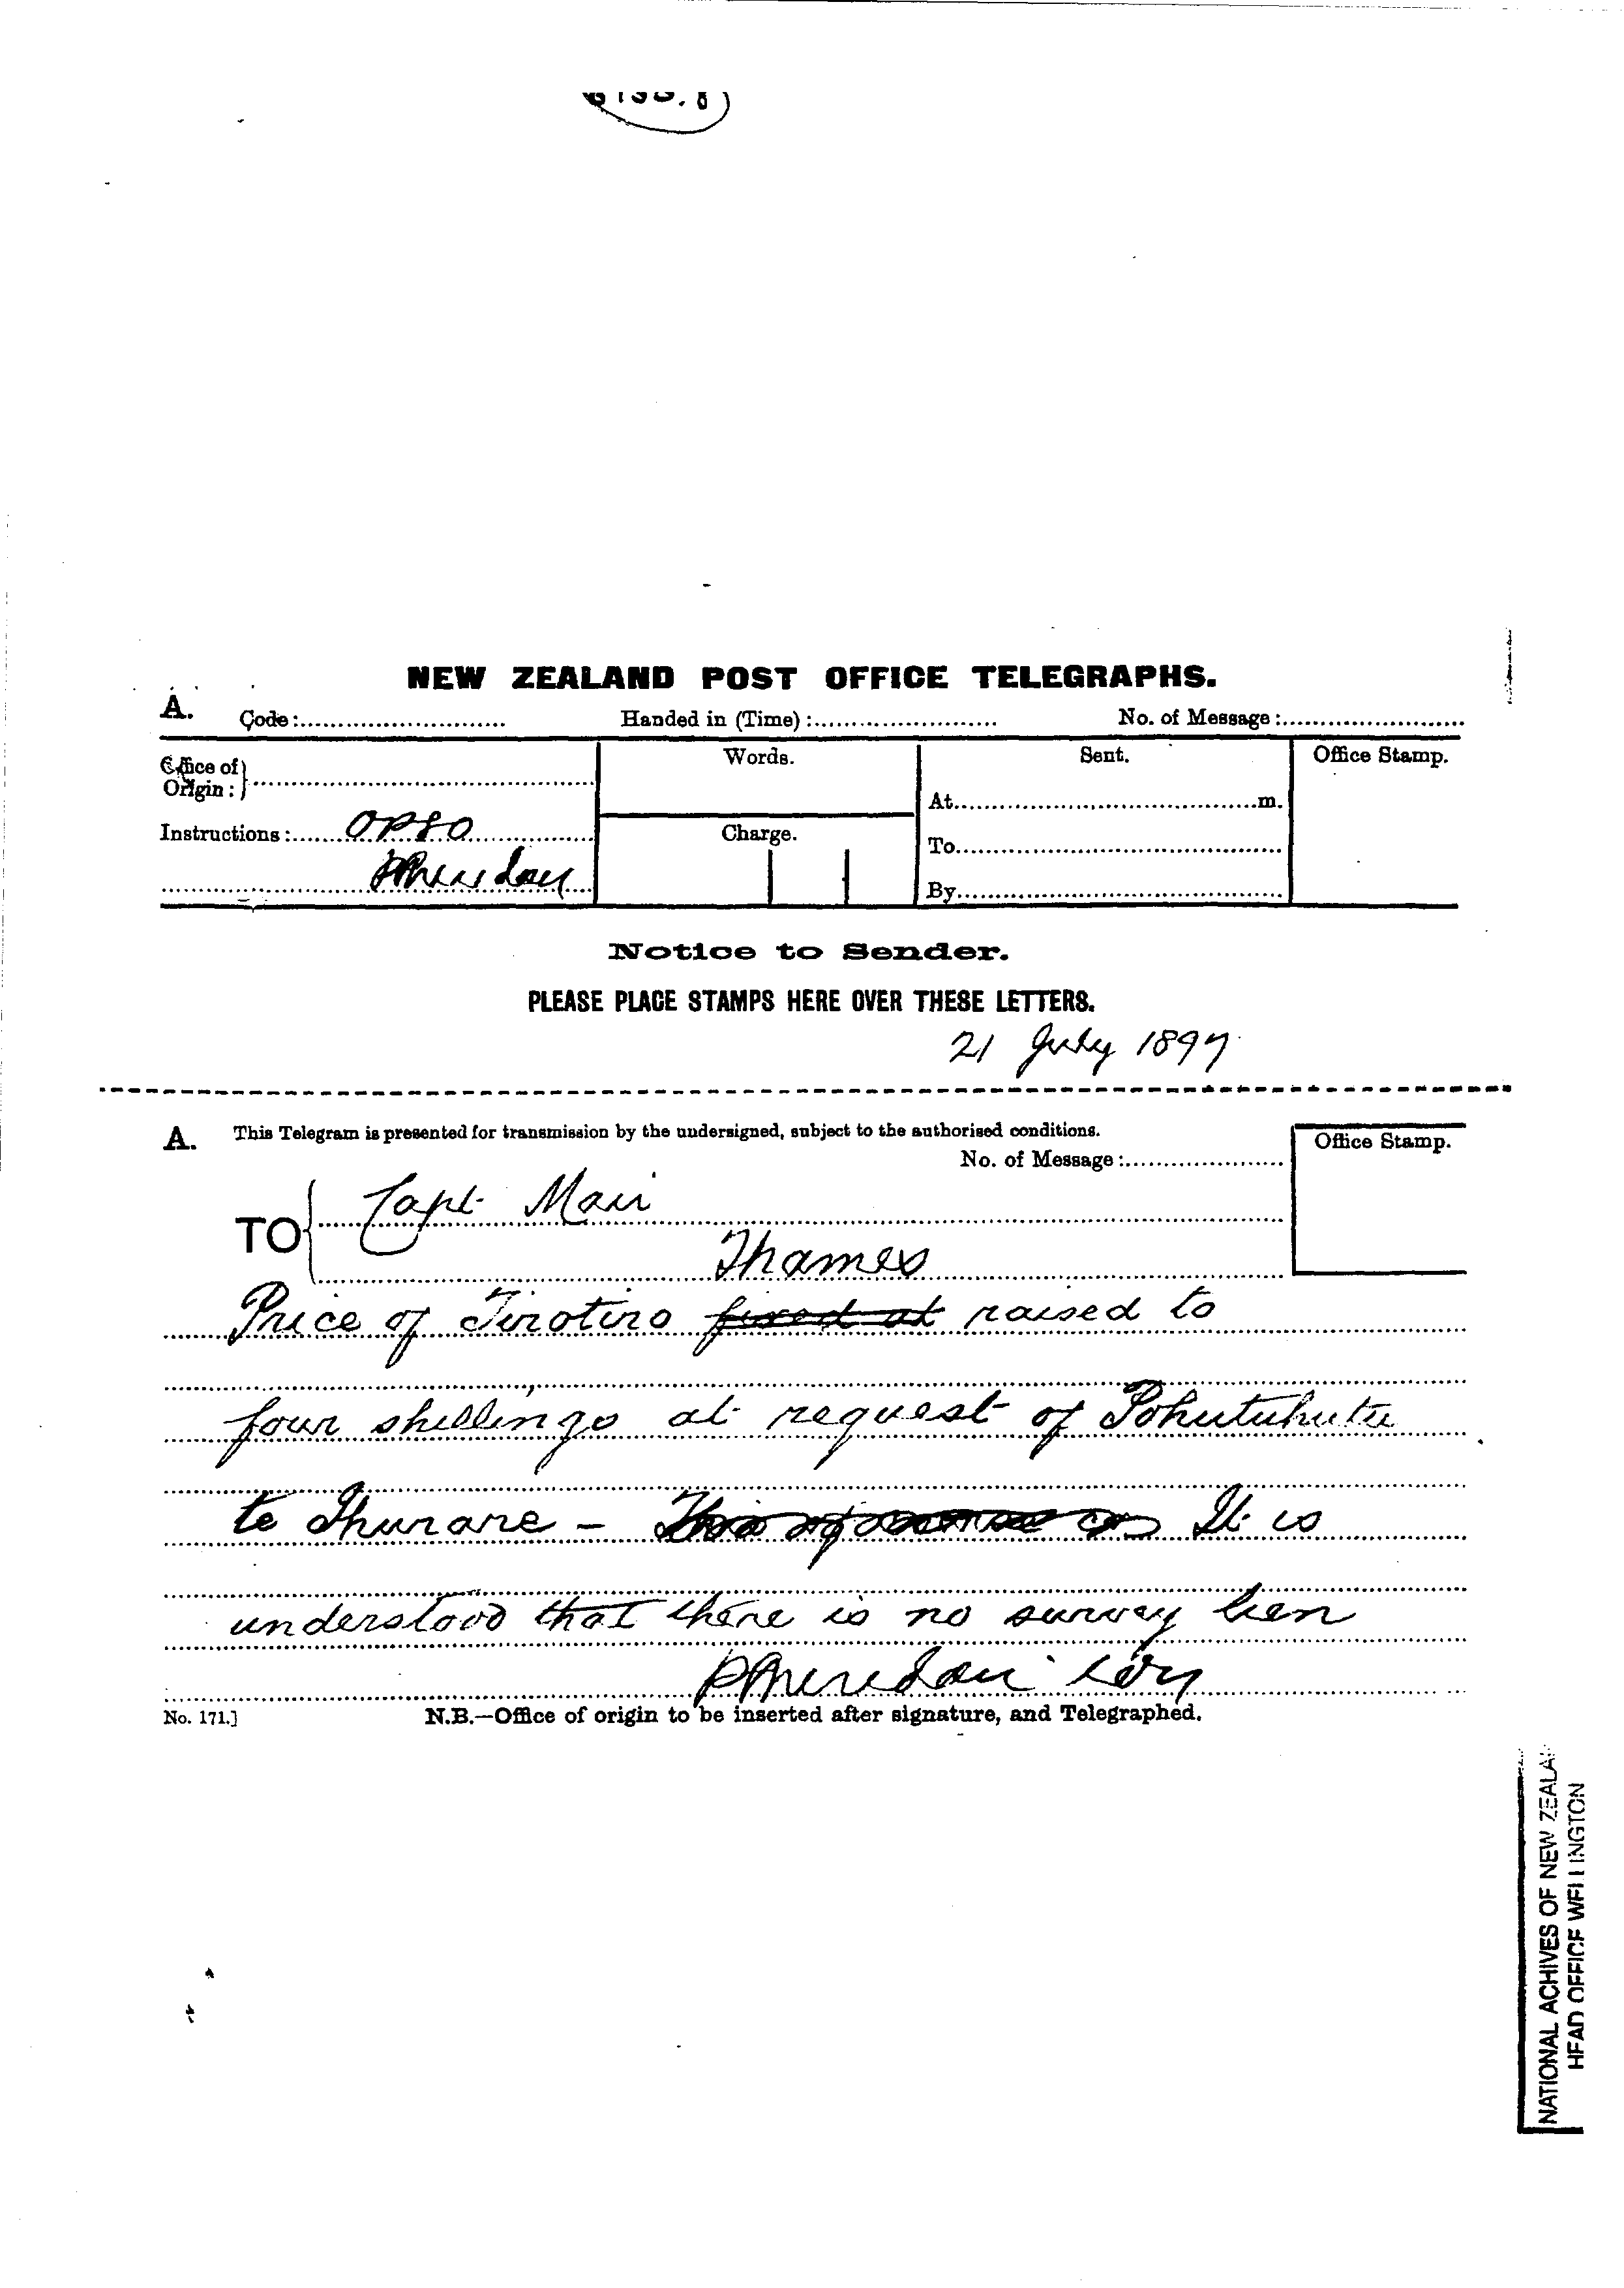 NEW ZEALAND POST OFFICE TELEGRAPHS.
A. Code: Handed in (Time): No. of Message:
Office of Origin: Words. Sent. Office Stamp.
At m.
Instructions: OPSO Charge. To
PSheridan By
Notice to Sender.
PLEASE PLACE STAMPS HERE OVER THESE LETTERS.
21 July 1897
A. This Telegram is presented for transmission by the undersigned, subject to the authorised conditions. Office Stamp.
No. of Message:
TO Capt Mair
Thames
Price of Tirotiro fixed at raised to
four shillings at request of Pohutuhutu
te Ihurare - It is
understood that there is no survey lien
PSheridan
No. 171.] N.B.—Office of origin to be inserted after signature, and Telegraphed.
NATIONAL ACHIVES OF NEW ZEALAN
HEAD OFFICE WELLINGTON